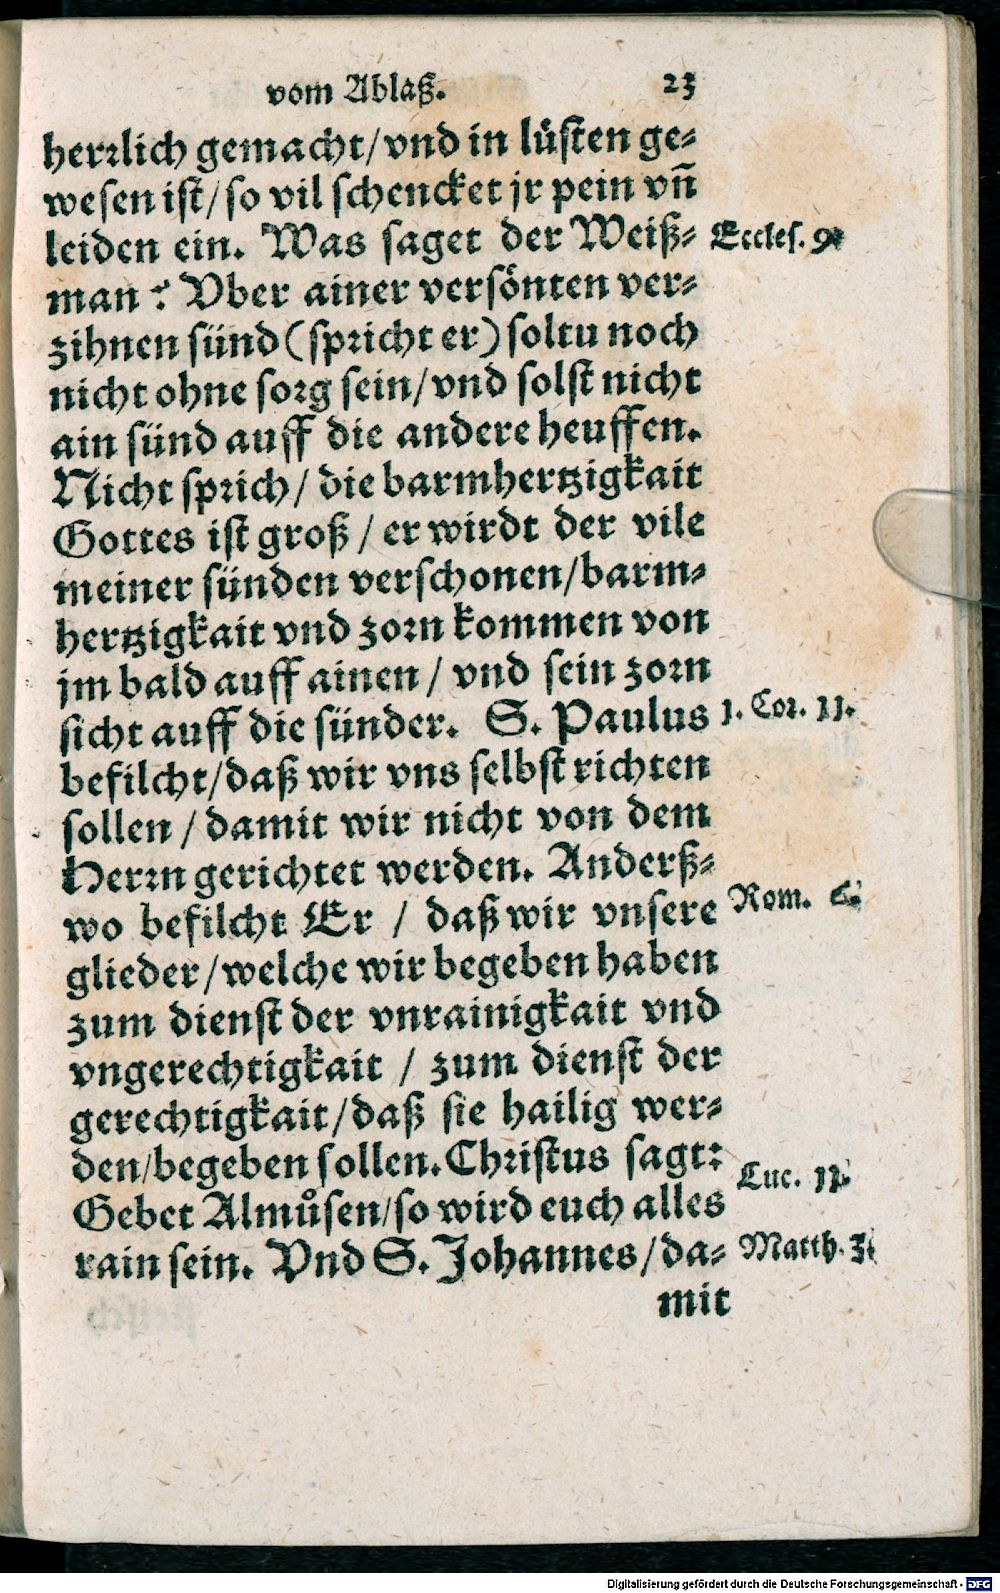 vom Ablaß. 23
herrlich gemacht/vnd in lüsten ge-
wesen ist/so vil schencket jr pein vñ
leiden ein. Was saget der Weiß- Eccles. 9.
man? Vber ainer versönten ver-
zihnen sünd (spricht er) soltu noch
nicht ohne sorg sein/vnd solst nicht
ain sünd auff die andere heuffen.
Nicht sprich/die barmhertzigkait
Gottes ist groß/er wirdt der vile
meiner sünden verschonen/barm-
hertzigkait vnd zorn kommen von
jm bald auff ainen/vnd sein zorn
sicht auff die sünder. S. Paulus 1. Cor. 11.
befilcht/daß wir vns selbst richten
sollen/damit wir nicht von dem
Herrn gerichtet werden. Anderß-
wo befilcht Er/daß wir vnsere Rom. 6.
glieder/welche wir begeben haben
zum dienst der vnrainigkait vnd
vngerechtigkait/zum dienst der
gerechtigkait/daß sie hailig wer-
den/begeben sollen. Christus sagt:
Gebet Almůsen/so wird euch alles Luc. 11.
rain sein. Vnd S. Johannes/da- Matth. 3.
mit
Digitalisierung gefördert durch die Deutsche Forschungsgemeinschaft - DFG